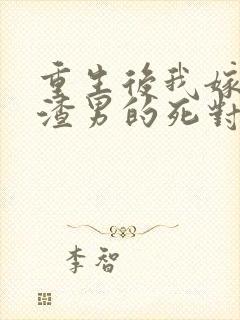 重生後我嫁
渣男的死對
李智